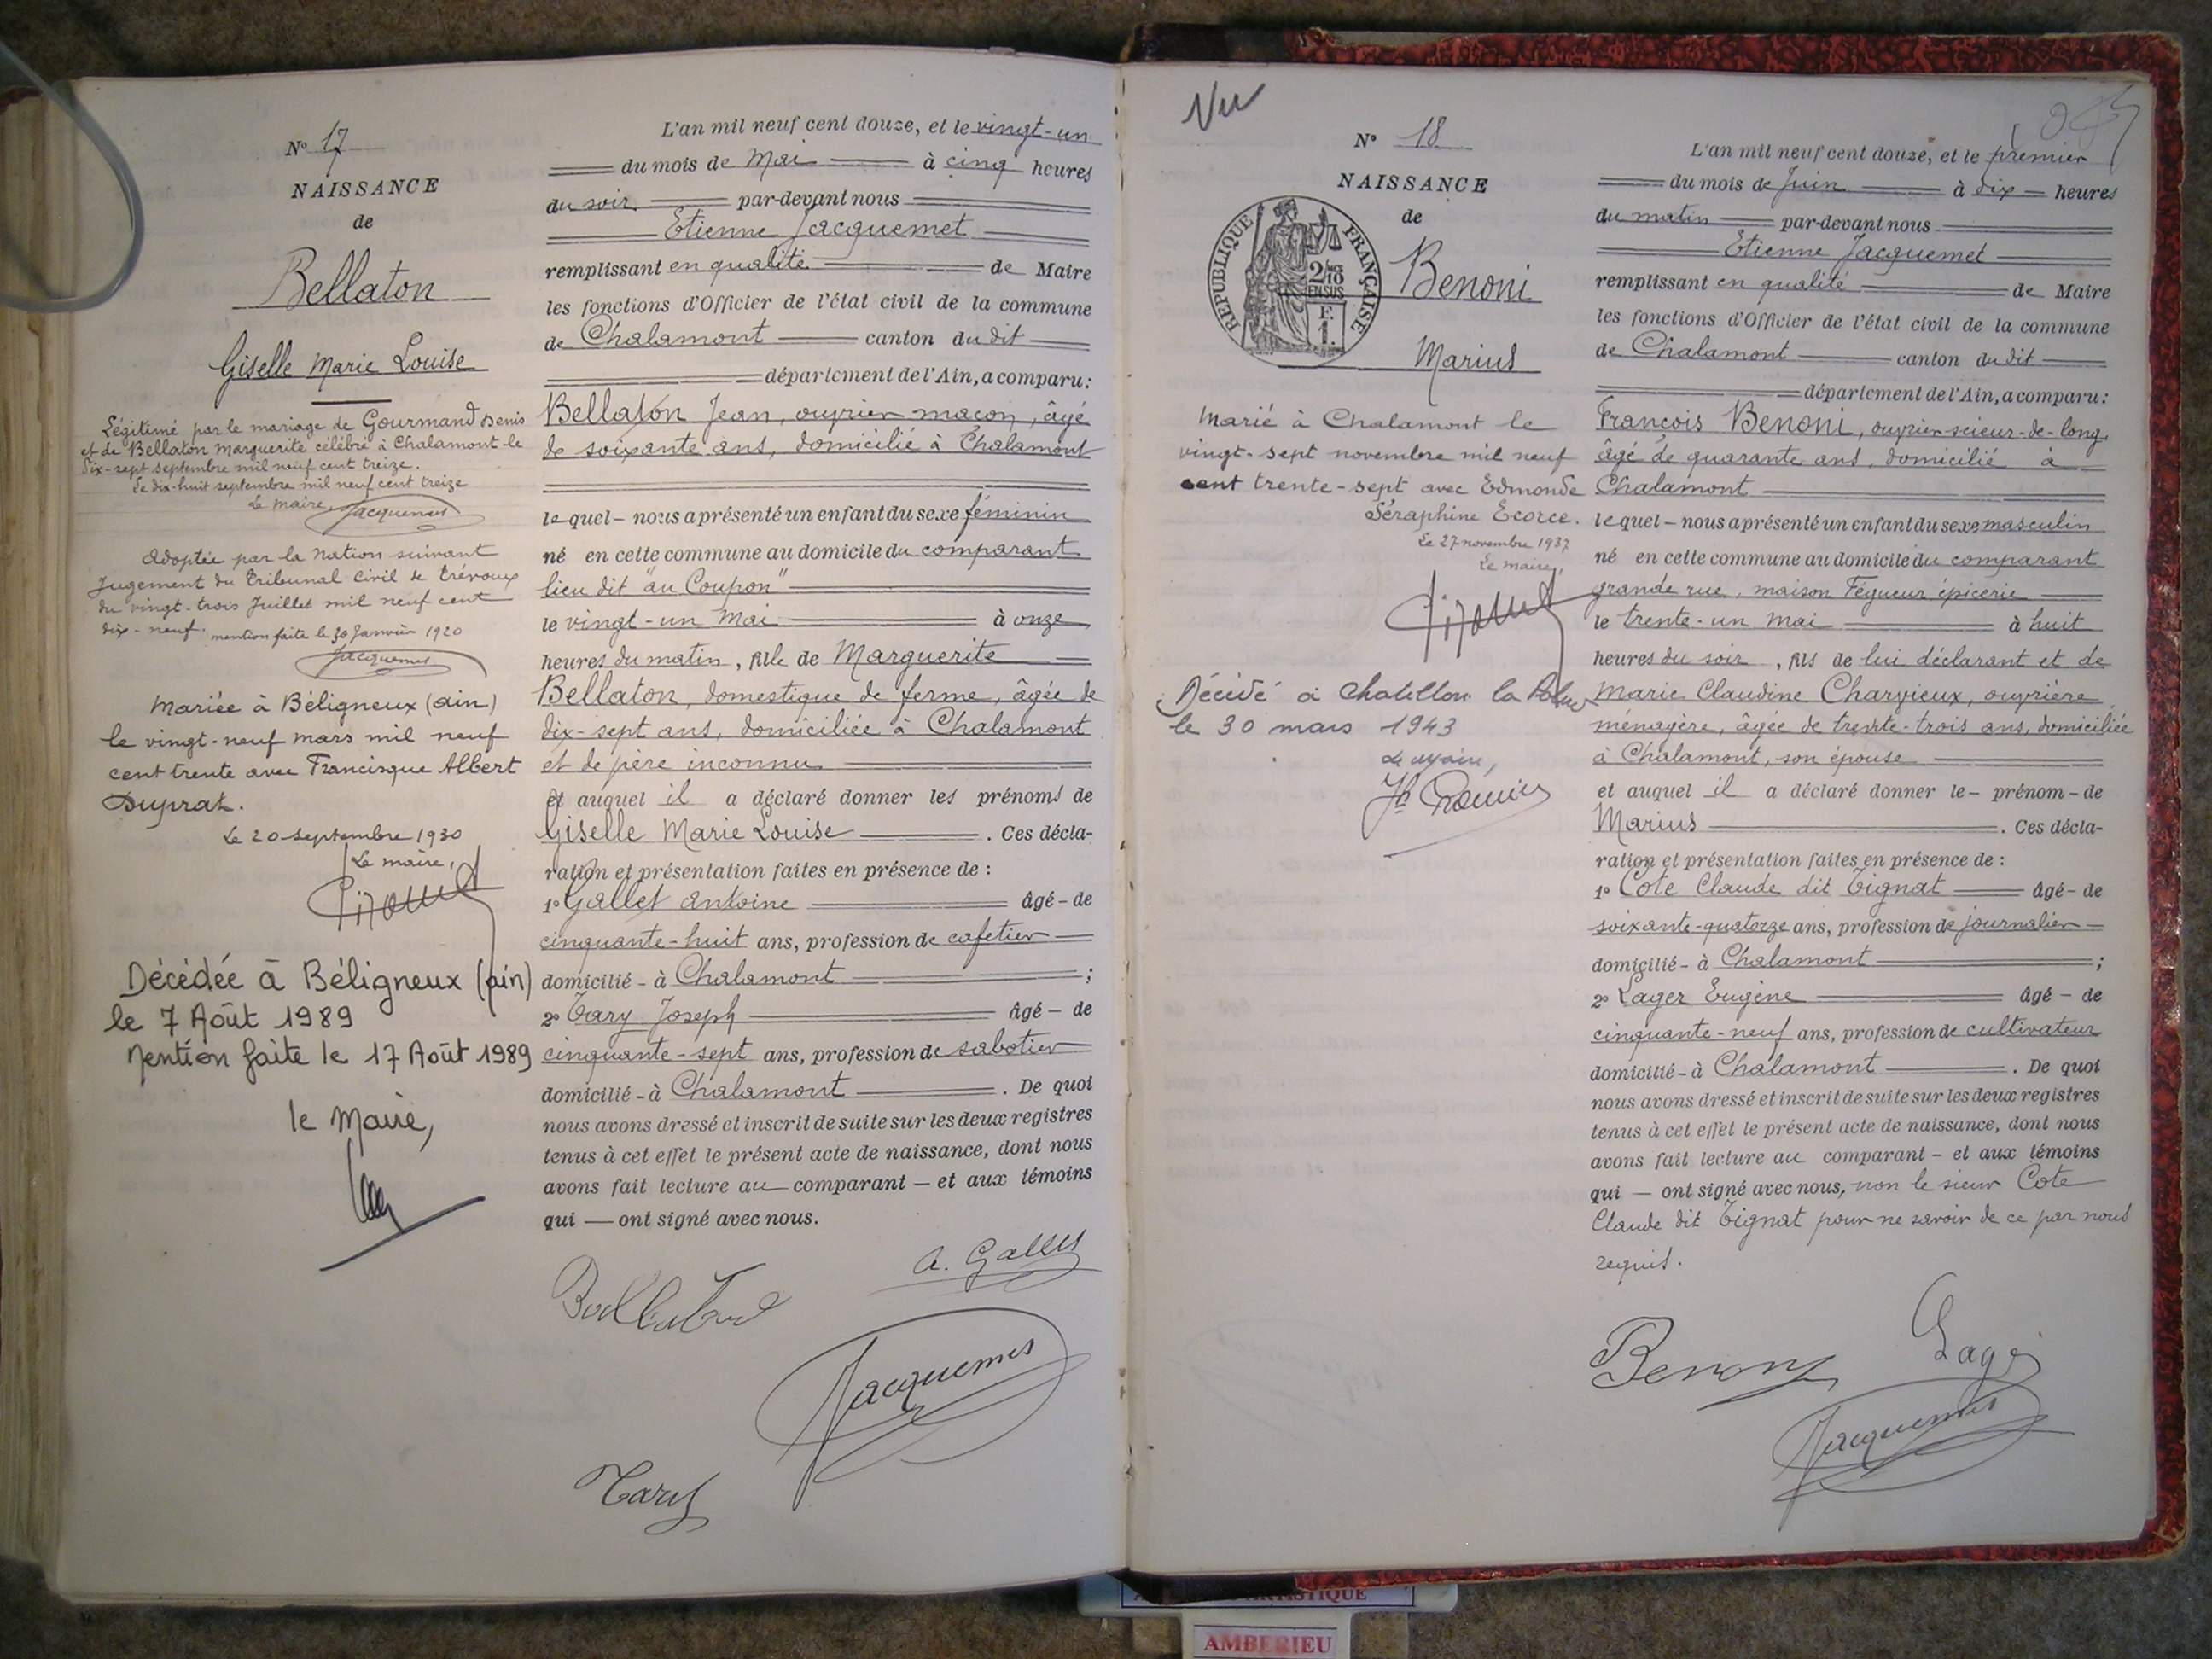 N° 17
NAISSANCE
de
Bellaton
Giselle Marie Louise
Légitimé par le mariage de Gourmand Denis
et de Bellaton Marguerite célébré à Chalamont le
Dix-sept septembre mil neuf cent treize.
Le dix-huit septembre mil neuf cent treize
Le maire, Jacquemet
Adoptée par la Nation suivant
Jugement du Tribunal Civil de Trévoux
du vingt-trois Juillet mil neuf cent
dix-neuf. mention faite le 30 Janvier 1920
Jacquemet
Mariée à Béligneux (Ain)
le vingt-neuf mars mil neuf
cent trente avec Francisque Albert
Duprat.
Le 20 septembre 1930
Le maire,
Décédée à Béligneux (Ain)
le 7 Août 1989
Mention faite le 17 Août 1989
le Maire,
L'an mil neuf cent douze, et le vingt-un
du mois de Mai à cinq heures
du soir par-devant nous
Etienne Jacquemet
remplissant en qualité de Maire
les fonctions d'Officier de l'état civil de la commune
de Chalamont canton du dit
département de l'Ain, a comparu:
Bellaton Jean, ouvrier maçon, âgé
de soixante ans, domicilié à Chalamont
lequel - nous a présenté un enfant du sexe féminin
né en cette commune au domicile du comparant
lieu dit "au Coupon"
le vingt-un Mai à onze
heures du matin, fille de Marguerite
Bellaton, domestique de ferme, âgée de
dix-sept ans, domiciliée à Chalamont
et de père inconnu
et auquel il a déclaré donner les prénoms de
Giselle Marie Louise. Ces décla-
ration et présentation faites en présence de :
1° Gallet Antoine âgé - de
cinquante-huit ans, profession de cafetier
domicilié - à Chalamont ;
2° Tary Joseph âgé - de
cinquante-sept ans, profession de sabotier
domicilié - à Chalamont. De quoi
nous avons dressé et inscrit de suite sur les deux registres
tenus à cet effet le présent acte de naissance, dont nous
avons fait lecture au comparant - et aux témoins
qui - ont signé avec nous.
A. Gallet
Jacquemet
Tary
Vu
N° 18
NAISSANCE
de
REPUBLIQUE FRANÇAISE
2/10
EN SUS
F.
1.
Benoni
Marius
Marié à Chalamont le
vingt-sept novembre mil neuf
cent trente-sept avec Edmonde
Séraphine Ecorce.
Le 27 novembre 1937
Le maire,
Décédé à Chatillon la Palud
le 30 mars 1943
Le Maire,
L'an mil neuf cent douze, et le premier
du mois de Juin à dix heures
du matin par-devant nous
Etienne Jacquemet
remplissant en qualité de Maire
les fonctions d'Officier de l'état civil de la commune
de Chalamont canton du dit
département de l'Ain, a comparu:
François Benoni, ouvrier-scieur-de-long,
âgé de quarante ans, domicilié à
Chalamont
lequel - nous a présenté un enfant du sexe masculin
né en cette commune au domicile du comparant
grande rue, maison Fégueur épicerie
le trente-un Mai à huit
heures du soir, fils de lui déclarant et de
Marie Claudine Charvieux, ouvrière
ménagère, âgée de trente-trois ans, domiciliée
à Chalamont, son épouse
et auquel il a déclaré donner le - prénom - de
Marius. Ces décla-
ration et présentation faites en présence de :
1° Cote Claude dit Tignat âgé - de
soixante-quatorze ans, profession de journalier
domicilié - à Chalamont ;
2° Lager Eugène âgé - de
cinquante-neuf ans, profession de cultivateur
domicilié - à Chalamont. De quoi
nous avons dressé et inscrit de suite sur les deux registres
tenus à cet effet le présent acte de naissance, dont nous
avons fait lecture au comparant - et aux témoins
qui - ont signé avec nous, non le sieur Cote
Claude dit Tignat pour ne savoir de ce par nous
requis.
Benony
Lager
Jacquemet
AMBERIEU